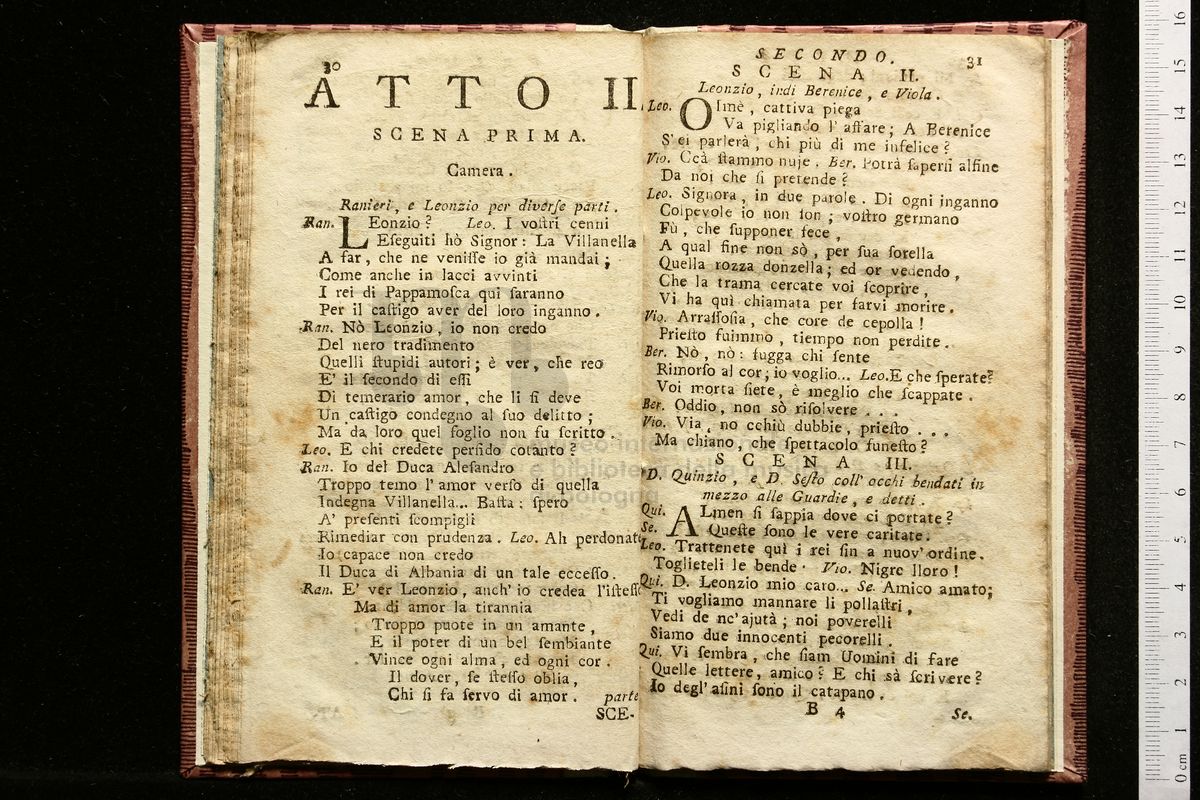 30
ATTO II.
SCENA PRIMA.
Camera.
Ranieri, e Leonzio per diverſe parti.
Ran. LEonzio? Leo. I voſtri cenni
Eſeguiti hò Signor: La Villanella
A far, che ne veniſſe io già mandai;
Come anche in lacci avvinti
I rei di Pappamoſca qui ſaranno
Per il caſtigo aver del loro inganno.
Ran. Nò Leonzio, io non credo
Del nero tradimento
Quelli ſtupidi autori; è ver, che reo
E' il ſecondo di eſſi
Di temerario amor, che li ſi deve
Un caſtigo condegno al ſuo delitto;
Ma da loro quel foglio non fu ſcritto.
Leo. E chi credete perfido cotanto?
Ran. Io del Duca Aleſandro
Troppo temo l'amor verſo di quella
Indegna Villanella... Baſta: ſpero
A' preſenti ſcompigli
Rimediar con prudenza. Leo. Ah perdonate
Io capace non credo
Il Duca di Albania di un tale ecceſſo.
Ran. E' ver Leonzio, anch'io credea l'iſteſſo
Ma di amor la tirannia
Troppo puote in un amante,
E il poter di un bel ſembiante
Vince ogni alma, ed ogni cor.
Il dover, ſe ſteſſo oblia,
Chi ſi fa ſervo di amor. parte
SCE-
SECONDO. 31
SCENA II.
Leonzio, indi Berenice, e Viola.
Leo. OImè, cattiva piega
Va pigliando l'affare; A Berenice
S'ei parlerà, chi più di me infelice?
Vio. Ccà ſtammo nuje. Ber. Potrà ſaperſi alfine
Da noi che ſi pretende?
Leo. Signora, in due parole. Di ogni inganno
Colpevole io non ſon; voſtro germano
Fù, che ſupponer fece,
A qual fine non sò, per ſua ſorella
Quella rozza donzella; ed or vedendo,
Che la trama cercate voi ſcoprire,
Vi ha quì chiamata per farvi morire.
Vio. Arraſſoſia, che core de cepolla!
Prieſto fuimmo, tiempo non perdite.
Ber. Nò, nò: fugga chi ſente
Rimorſo al cor; io voglio... Leo. E che ſperate?
Voi morta ſiete, è meglio che ſcappate.
Ber. Oddio, non sò riſolvere...
Vio. Via, no cchiù dubbie, prieſto...
Ma chiano, che ſpettacolo funeſto?
SCENA III.
D. Quinzio, e D. Seſto coll'occhi bendati in
mezzo alle Guardie, e detti.
Qui. ALmen ſi ſappia dove ci portate?
Se. Queſte ſono le vere caritate.
Leo. Trattenete quì i rei ſin a nuov'ordine.
Toglieteli le bende. Vio. Nigre lloro!
Qui. D. Leonzio mio caro... Se. Amico amato;
Ti vogliamo mannare li pollaſtri,
Vedi de nc'ajutà; noi poverelli
Siamo due innocenti pecorelli.
Qui. Vi ſembra, che ſiam Uomini di fare
Quelle lettere, amico? E chi sà ſcrivere?
Io degl'aſini ſono il catapano.
B 4 Se.
museo internazionale
e biblioteca della musica
bologna
0 cm 1 2 3 4 5 6 7 8 9 10 11 12 13 14 15 16